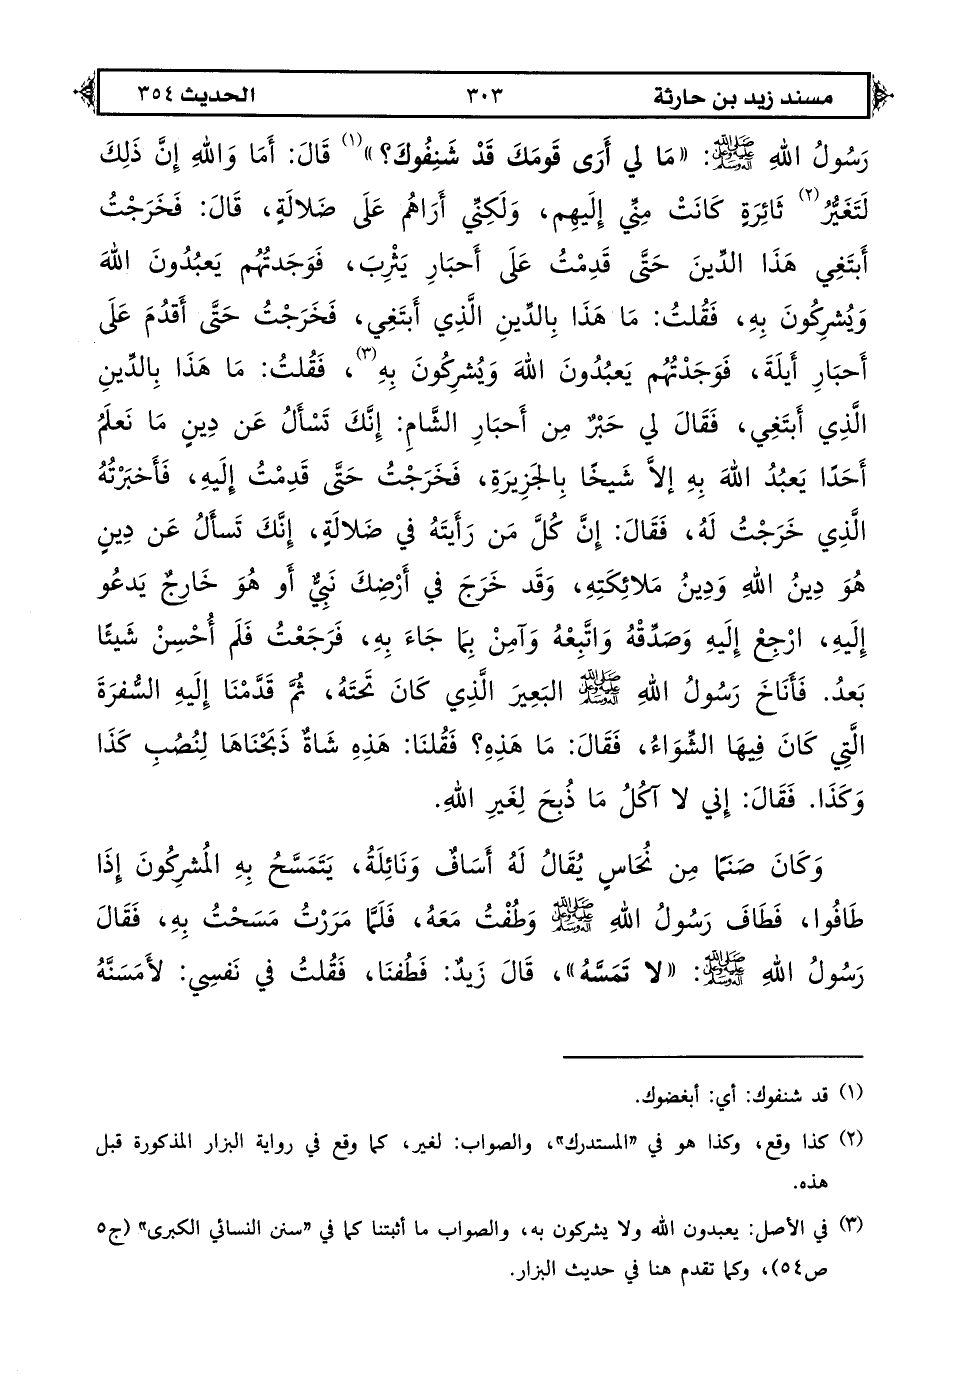 مسند زيد بن حارثة ٣٠٣ الحديث ٣٥٤
رَسُولُ اللهِ ﷺ: «مَا لي أَرَى قَومَكَ قَدْ شَنِفُوكَ؟»(١) قَالَ: أَمَا وَاللهِ إِنَّ ذَلِكَ
لَتَغَيُّرُ(٢) ثَائِرَةٍ كَانَتْ مِنِّي إِلَيهِم، وَلَكِنِّي أَرَاهُم عَلَى ضَلالَةٍ، قَالَ: فَخَرَجْتُ
أَبتَغِي هَذَا الدِّينَ حَتَّى قَدِمْتُ عَلَى أَحبَارِ يَثْرِبَ، فَوَجَدتُهُم يَعبُدُونَ اللهَ
وَيُشرِكُونَ بِهِ، فَقُلتُ: مَا هَذَا بِالدِّينِ الَّذِي أَبتَغِي، فَخَرَجْتُ حَتَّى أَقدُمَ عَلَى
أَحبَارِ أَيلَةَ، فَوَجَدْتُهُم يَعبُدُونَ اللهَ وَيُشرِكُونَ بِهِ(٣)، فَقُلتُ: مَا هَذَا بِالدِّينِ
الَّذِي أَبتَغِي، فَقَالَ لي حَبْرٌ مِن أَحبَارِ الشَّامِ: إِنَّكَ تَسْأَلُ عَن دِينٍ مَا نَعلَمُ
أَحَدًا يَعبُدُ اللهَ بِهِ إلاَّ شَيخًا بِالجَزِيرَةِ، فَخَرَجْتُ حَتَّى قَدِمْتُ إِلَيهِ، فَأَخبَرْتُهُ
الَّذِي خَرَجْتُ لَهُ، فَقَالَ: إِنَّ كُلَّ مَن رَأَيتَهُ في ضَلالَةٍ، إِنَّكَ تَسأَلُ عَن دِينٍ
هُوَ دِينُ اللهِ وَدِينُ مَلائِكَتِهِ، وَقَد خَرَجَ في أَرْضِكَ نَبِيٌّ أَو هُوَ خَارِجٌ يَدعُو
إِلَيهِ، ارْجِعْ إِلَيهِ وَصَدِّقْهُ وَاتَّبِعْهُ وَآمِنْ بِمَا جَاءَ بِهِ، فَرَجَعْتُ فَلَم أُحْسِنْ شَيئًا
بَعدُ. فَأَنَاخَ رَسُولُ اللهِ ﷺ البَعِيرَ الَّذِي كَانَ تَحتَهُ، ثُمَّ قَدَّمْنَا إِلَيهِ السُّفرَةَ
الَّتِي كَانَ فِيهَا الشِّوَاءُ، فَقَالَ: مَا هَذِهِ؟ فَقُلنَا: هَذِهِ شَاةٌ ذَبَحْنَاهَا لِنُصُبِ كَذَا
وَكَذَا. فَقَالَ: إِني لا آكُلُ مَا ذُبِحَ لِغَيرِ اللهِ.
وَكَانَ صَنَمًا مِن نُحَاسٍ يُقَالُ لَهُ أَسَافٌ وَنَائِلَةُ، يَتَمَسَّحُ بِهِ المُشرِكُونَ إِذَا
طَافُوا، فَطَافَ رَسُولُ اللهِ ﷺ وَطُفْتُ مَعَهُ، فَلَمَّا مَرَرْتُ مَسَحْتُ بِهِ، فَقَالَ
رَسُولُ اللهِ ﷺ: «لا تَمَسَّهُ»، قَالَ زَيدٌ: فَطُفنَا، فَقُلتُ في نَفسِي: لأَمَسَنَّهُ
(١) قد شنفوك: أي: أبغضوك.
(٢) كذا وقع، وكذا هو في «المستدرك»، والصواب: لغير، كما وقع في رواية البزار المذكورة قبل
هذه.
(٣) في الأصل: يعبدون الله ولا يشركون به، والصواب ما أثبتنا كما في «سنن النسائي الكبرى» (ج٥
ص٥٤)، وكما تقدم هنا في حديث البزار.